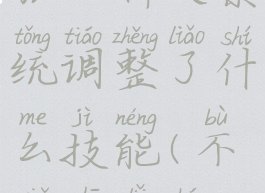 tǒng tiáo zhěng liǎo shí
统调整了什
me jì néng bù
么技能(不